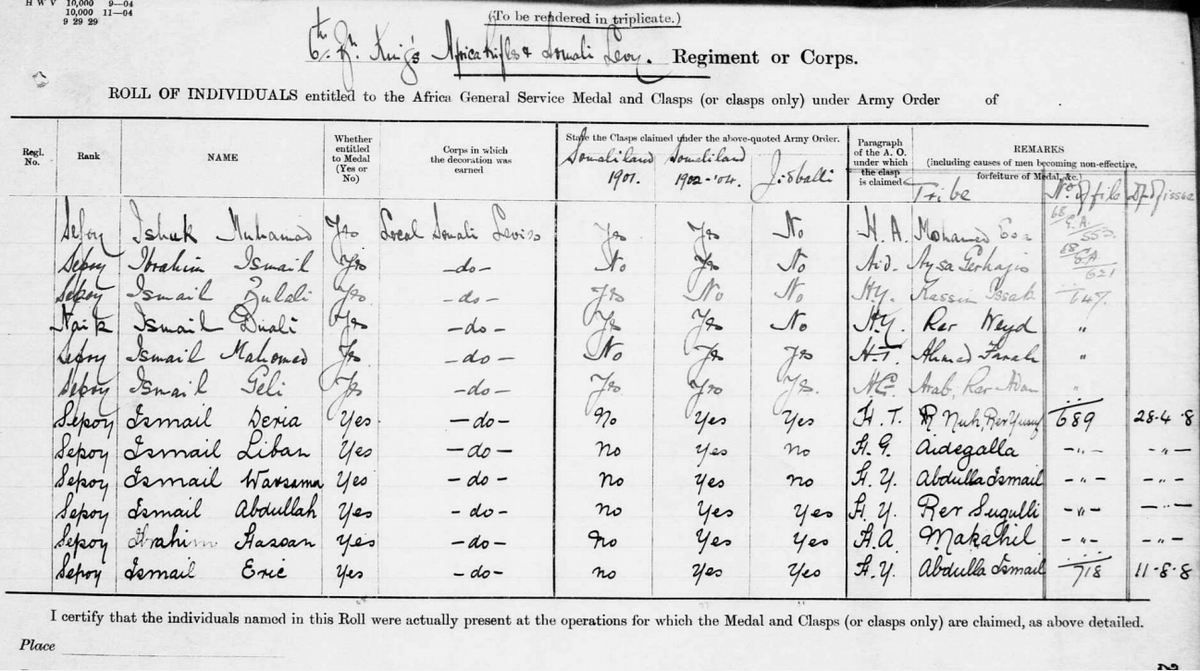 H W V 10,000 9—04
10,000 11—04
9 29 29
(To be rendered in triplicate.)
6th Bn King's Africa Rifles & Somali Levy. Regiment or Corps.
ROLL OF INDIVIDUALS entitled to the Africa General Service Medal and Clasps (or clasps only) under Army Order of .
Regl. No. Rank NAME Whether entitled to Medal (Yes or No) Corps in which the decoration was earned State the Clasps claimed under the above-quoted Army Order. Paragraph of the A. O. under which the clasp is claimed REMARKS (including causes of men becoming non-effective, forfeiture of Medal, &c.)
Somaliland 1901. Somaliland 1902-'04. Jidballi Tribe No of file Dt of issue
Sepoy Ishak Muhamad Yes Local Somali Levies Yes Yes No H. A. Mohamed Esa 68/S.A./553
Sepoy Ibrahim Ismail Yes —do— No Yes No Aid. Aysa Gerhajis 68/S.A./621
Sepoy Ismail Yes —do— Yes No No H.Y. Kassim Issak 647
Naik Ismail Duali Yes —do— Yes Yes No H.Y. Rer Weyd "
Sepoy Ismail Mahomed Yes —do— No Yes Yes H.T. Ahmad Farah "
Sepoy Ismail Geli Yes —do— Yes Yes Yes. Arab, Rer Adan "
Sepoy Ismail Deria Yes —do— No Yes Yes H. T. R Nuh, Rer Yusuf 689 28-4-8
Sepoy Ismail Liban Yes —do— no Yes no H. G. Aidegalla —"— —"—
Sepoy Ismail Warsama Yes —do— no Yes no H. Y. Abdulla Ismail —"—
Sepoy Ismail Abdullah Yes —do— no Yes Yes H. Y. Rer Sugulli —"— —"—
Sepoy Ibrahim Hassan Yes —do— No Yes Yes H. A. Makahil —"— —"—
Sepoy Ismail Eric Yes —do— no Yes Yes H. Y. Abdulla Ismail 718 11-8-8
I certify that the individuals named in this Roll were actually present at the operations for which the Medal and Clasps (or clasps only) are claimed, as above detailed.
Place